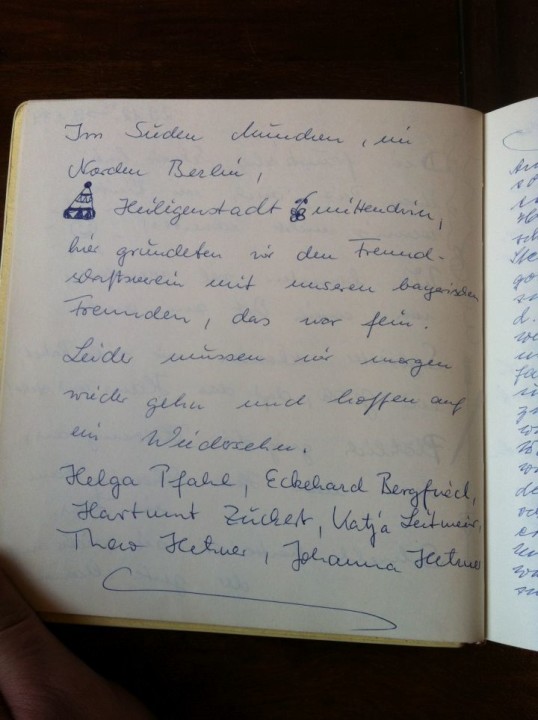 Im Süden München, im
Norden Berlin,
Heiligenstadt mittendrin,
hier gründeten wir den Freund-
schaftsverein mit unseren bayerischen
Freunden, das war fein.
Leider müssen wir morgen
wieder gehn und hoffen auf
ein Wiedersehn.
Helga Pfahl, Eckehard Bergfried,
Hartmut Zückert, Katja Leitmeir,
Theo Hetner, Johanna Hetner